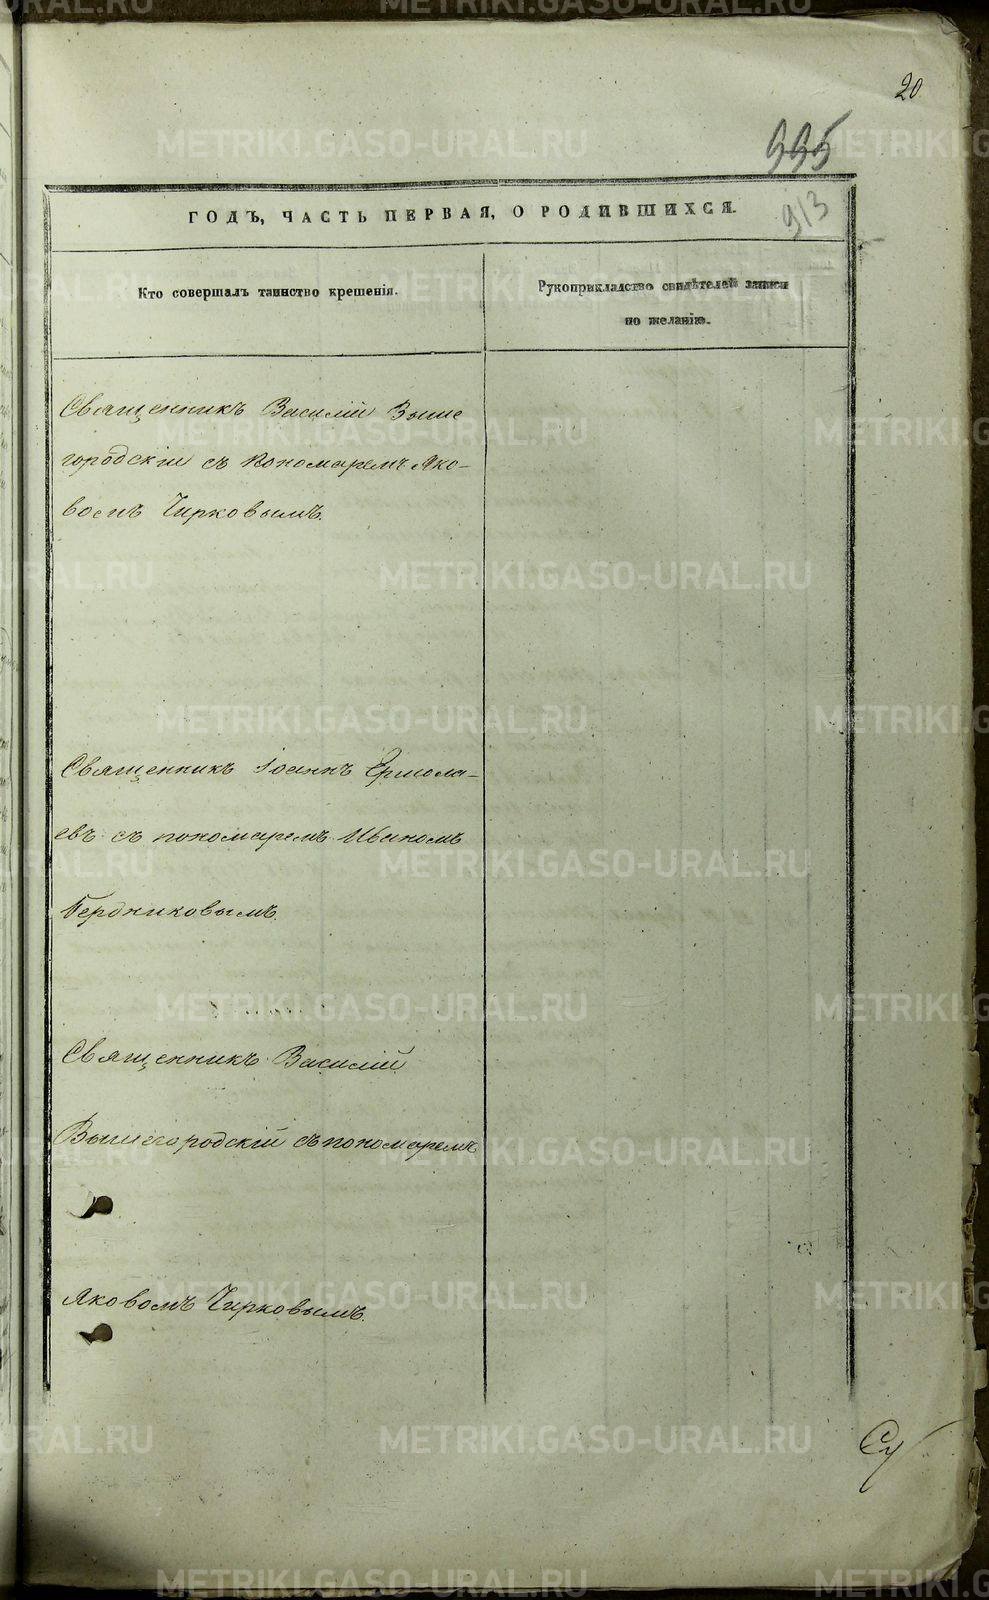 20
995
913
ГОДЪ, ЧАСТЬ ПЕРВАЯ, О РОДИВШИХСЯ.
Кто совершалъ таинство крещенія.
Рукоприкладство свидѣтелей записи
по желанію.
Священникъ Василій Выше
городскій съ пономаремъ Яко-
вомъ Чирковымъ.
Священникъ Іоаннъ Ермола-
евъ съ пономаремъ Иваномъ
Бердниковымъ.
Священникъ Василій
Вышегородскій съ пономаремъ
Яковомъ Чирковымъ.
METRIKI.GASO-URAL.RU